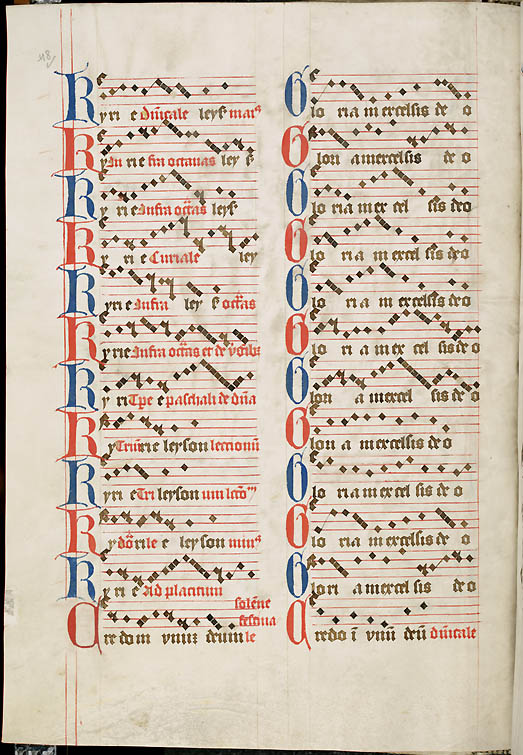 Kyri e dn̄icale leyſ maiꝰ
Kyri e leyſ
Kyri e Infra octa̅s leyſ
Kyri e Curiale ley
Kyri e Infra ley ſ octa̅s
Kyrie Infra octa̅s et de
Kyri e paſchali de dn̄a
Kyrie leyſon lectionū
Kyri e leyſon
Kyrie e leyſon minꝰ
Kyri e Ad placitum
ſolēne
Credo in vnum deum
Glo ria in excelſis de o
Glori a in excelſis de o
Glo ria in ex cel ſis deo
Glo ri a in excel ſis deo
Glo ri a in excelſis deo
Glo ri a in ex cel ſis de o
Glori a in excel ſis de o
Glori a in excelſis de o
Glo ria in excel ſis de o
Glo ria in excelſis de o
Glori a in excelſis de o
Credo ī vnū deū dn̄icale